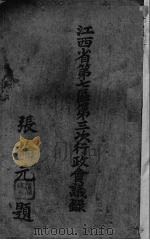 江西省第七區第三次行政會議錄
張
元
題